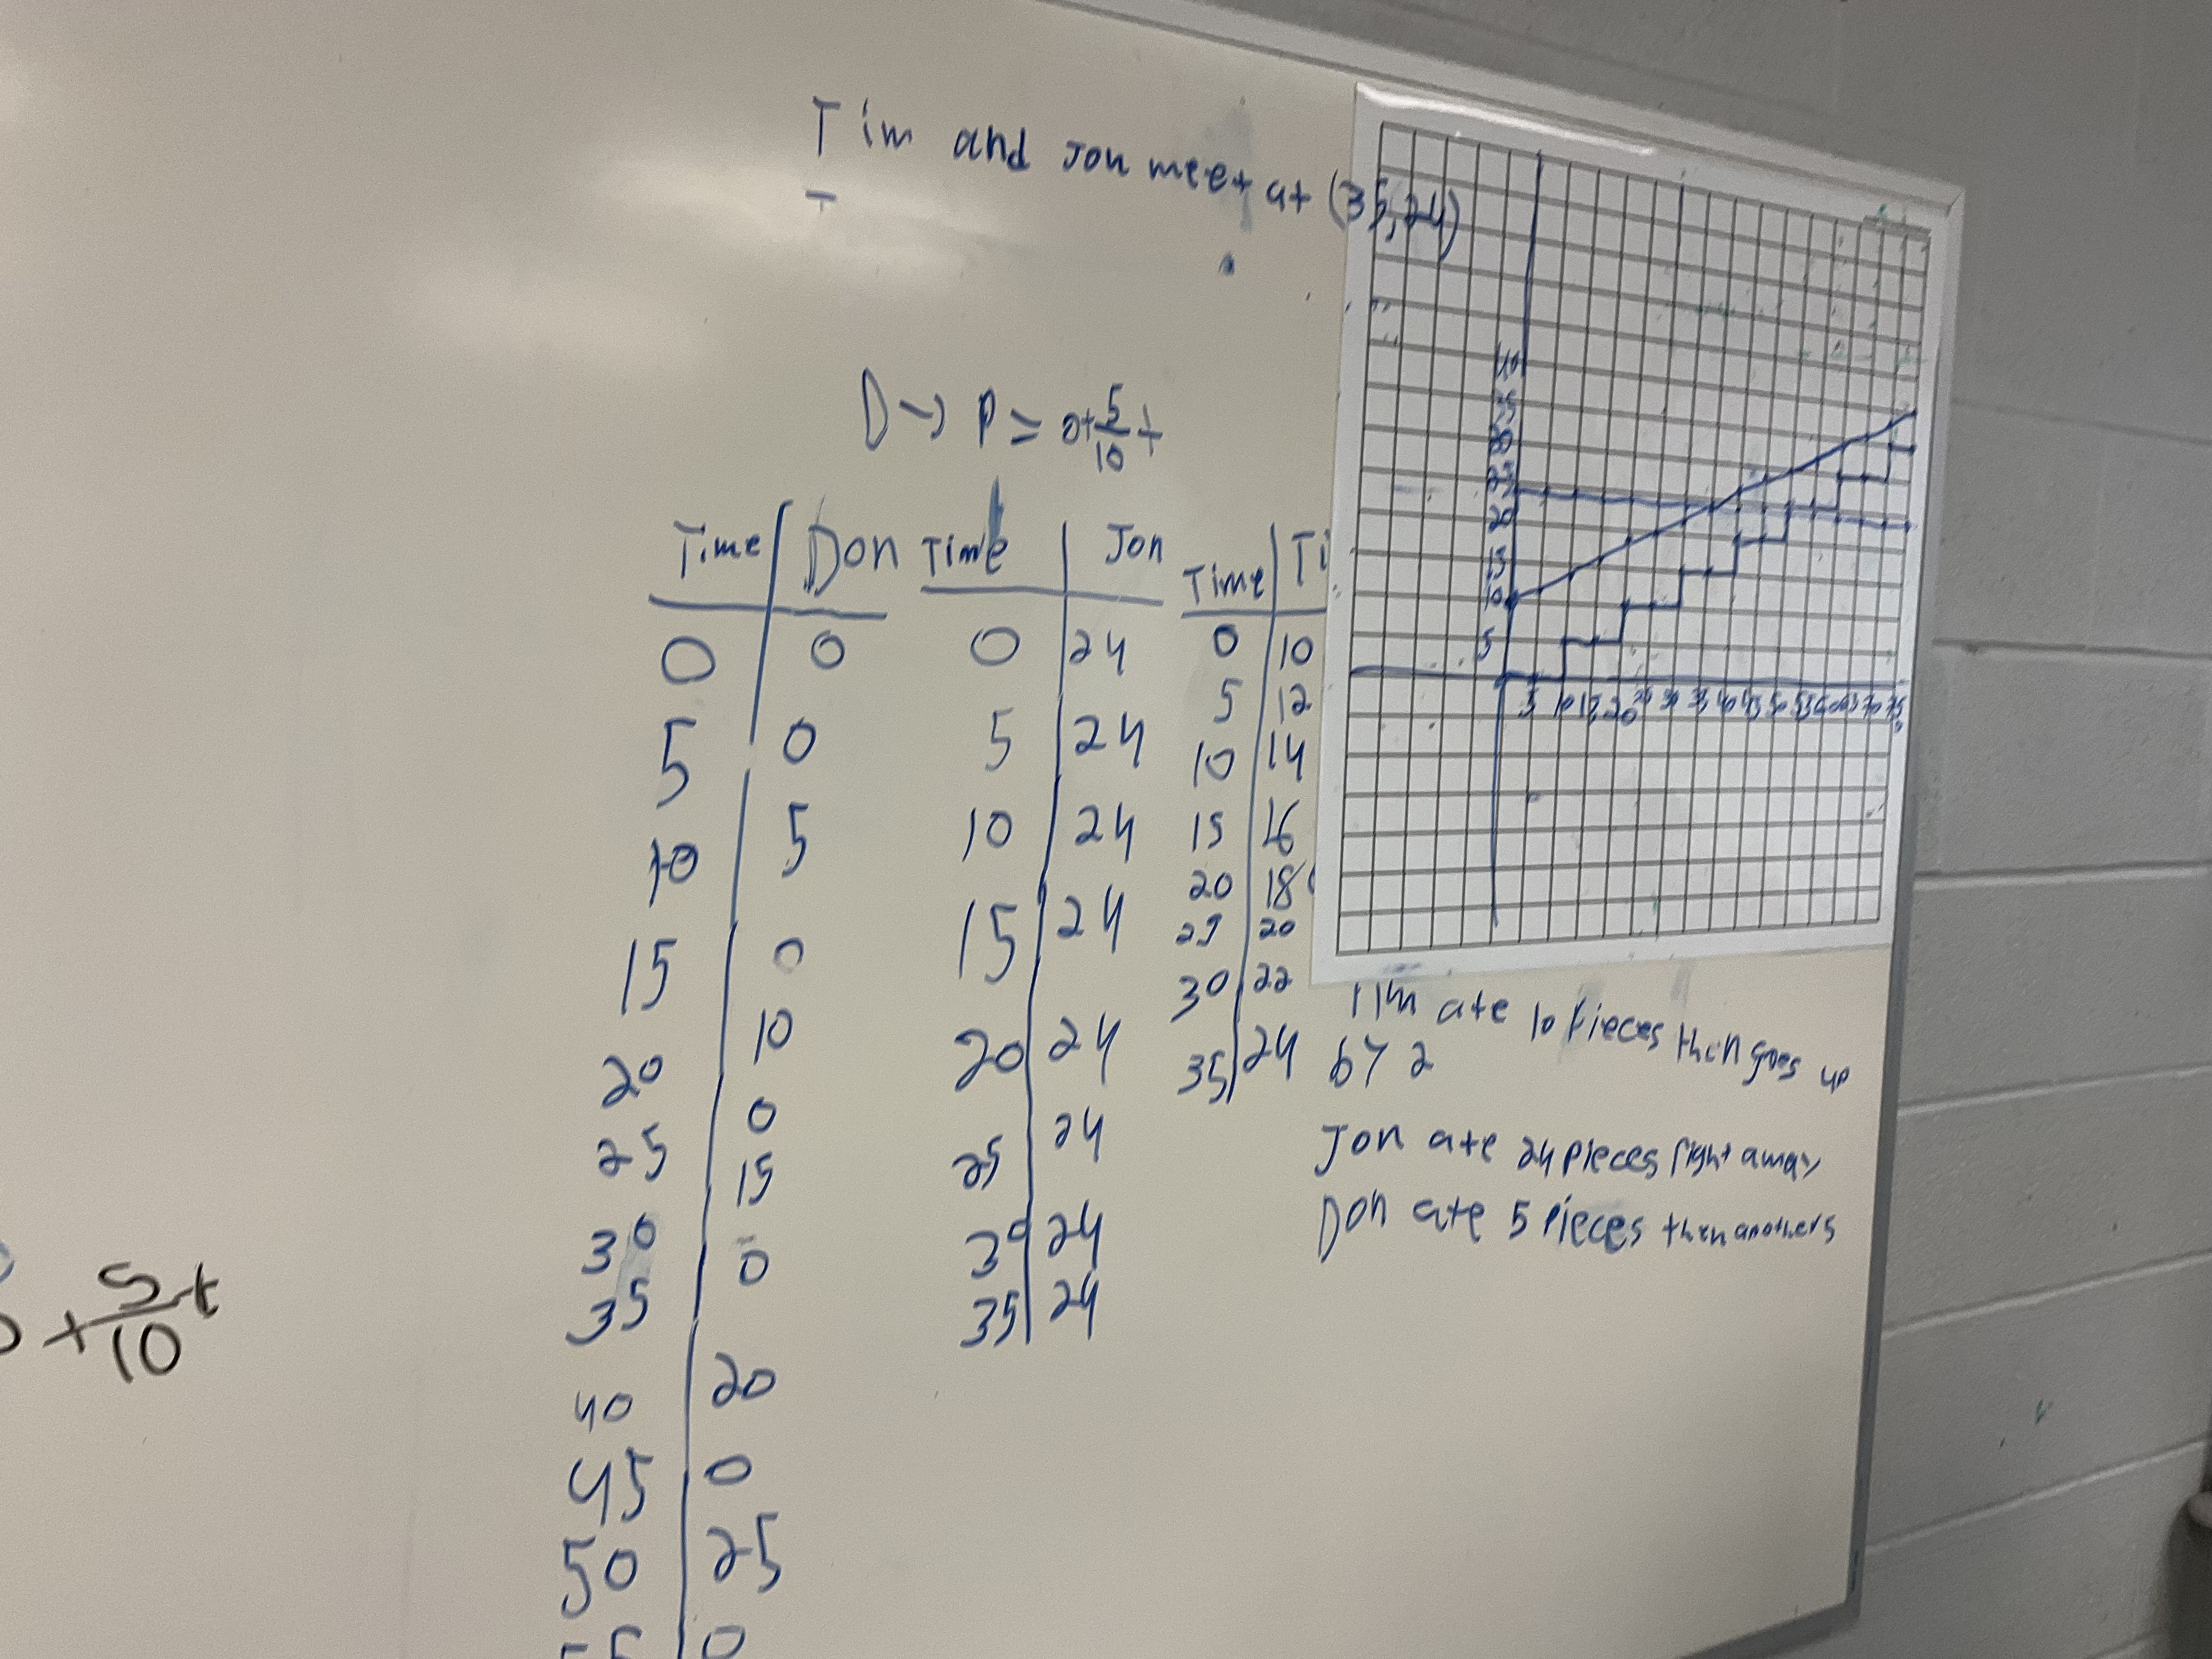 Tim and Jon meet at (35,24)
D → P = 0+5/10 t
Time Don
0 0
5 0
10 5
15 0
20 10
25 0
30 15
35 0
40 20
45 0
50 25
55 0
Time Jon
0 24
5 24
10 24
15 24
20 24
25 24
30 24
35 24
Time Ti
0 10
5 12
10 14
15 16
20 18
25 20
30 22
35 24
40
35
30
25
20
15
10
5
5 10 15 20 25 30 35 40 45 50 55 60 65 70 75
Tim ate 10 pieces then goes up
by 2
Jon ate 24 pieces right away
Don ate 5 pieces then another 5
+ 5/10 t